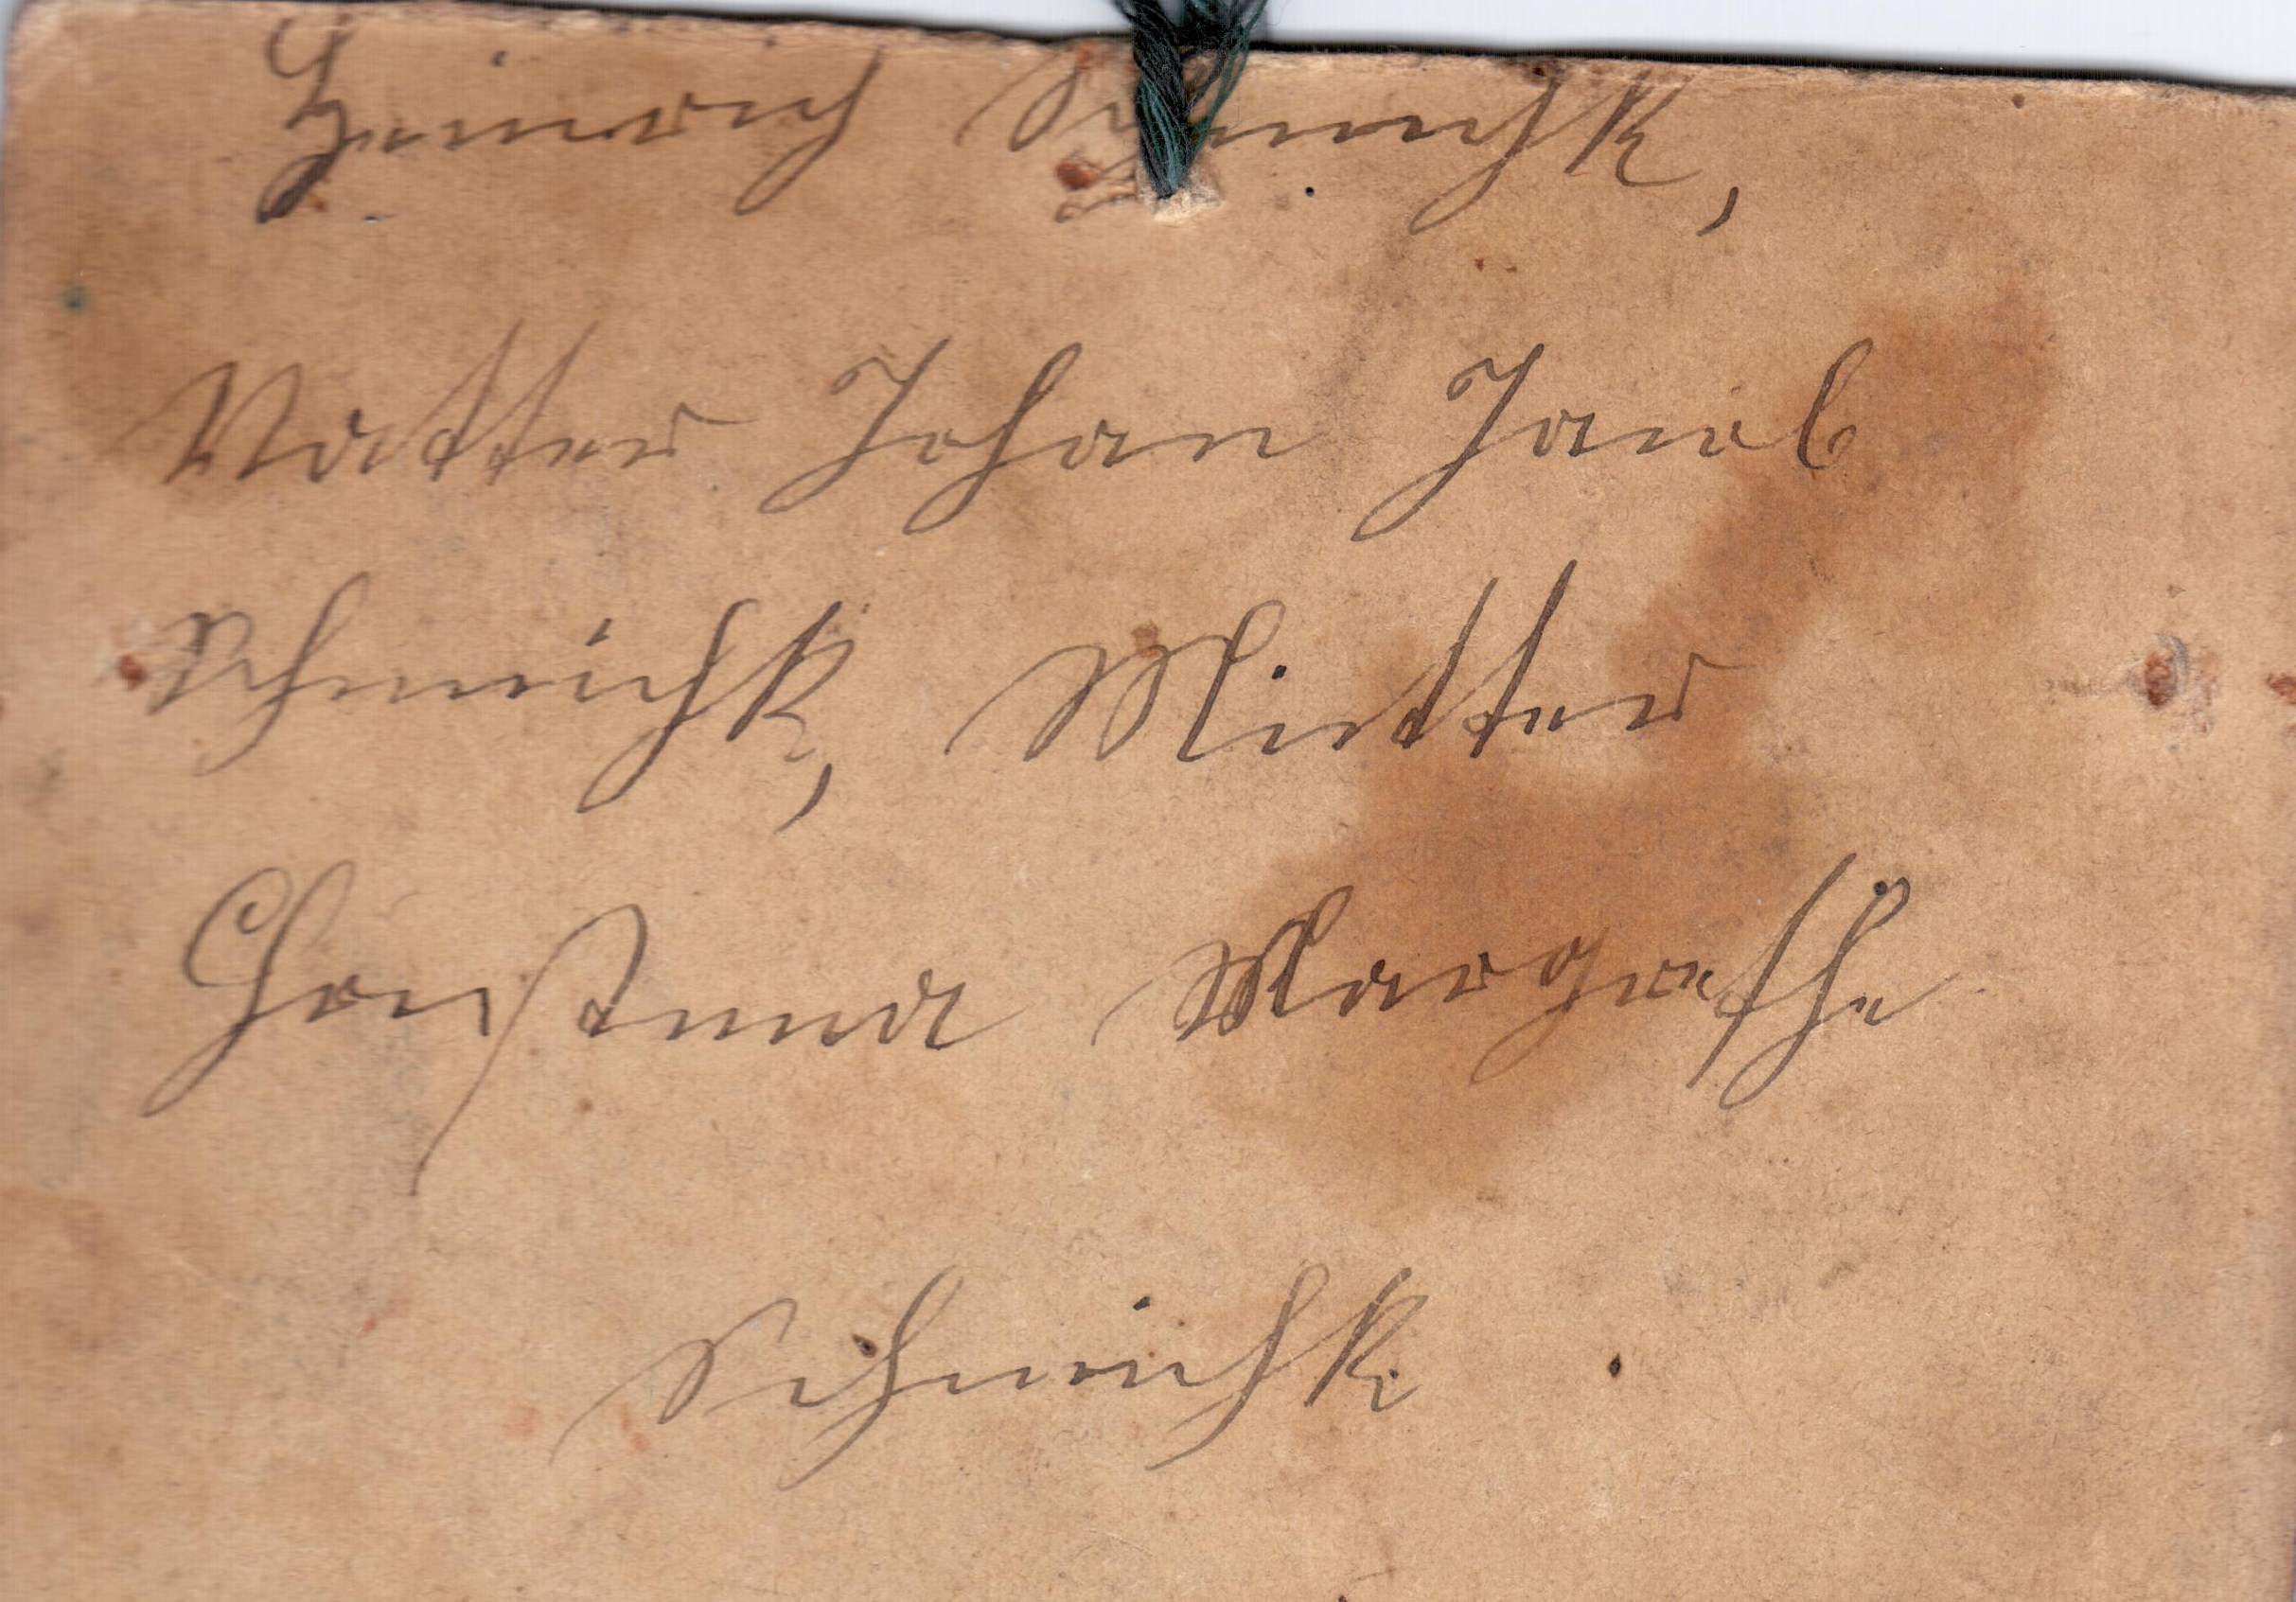 Heinrich Schmichk,
Vatter Johan Jacob
Schmichk, Mutter
Christina Margrethe
Schmichk